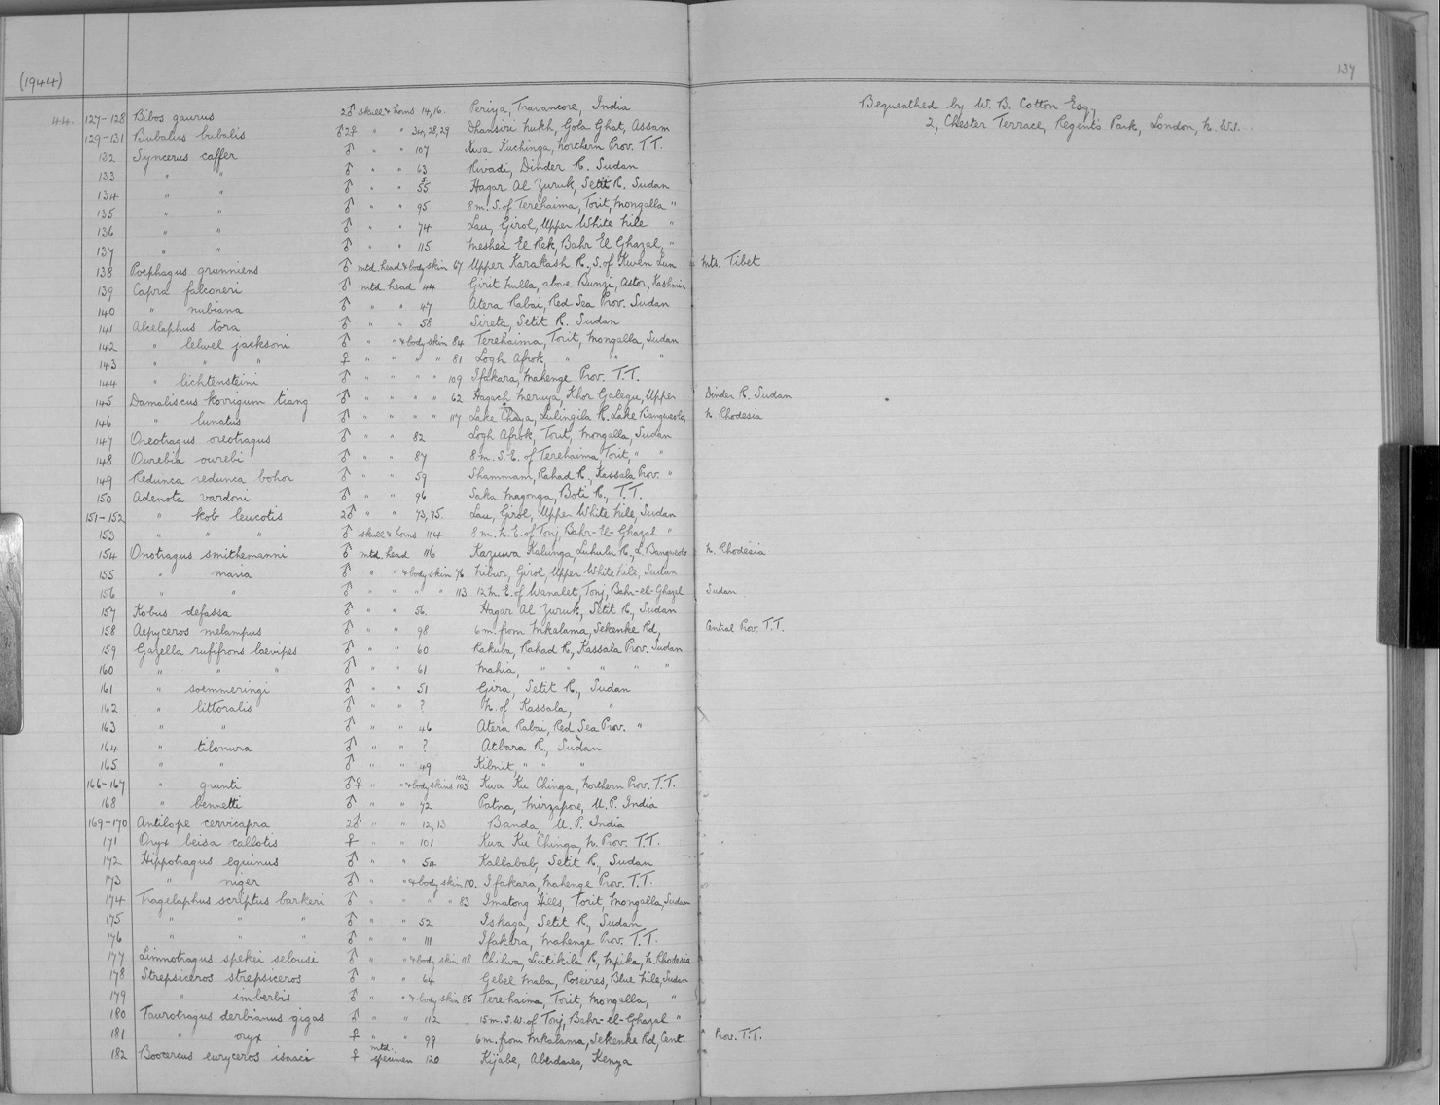 (1944)
137
44. 127-128 Bibos gaurus 2♂ skull & horns 14,16. Periya, Travancore, India Bequeathed by W. B. Cotton Esq,
129-131 Bubalus bubalis ♂2♀ " " 34,28,29 Dhansiri Mukh, Gola Ghat, Assam 2, Chester Terrace, Regent's Park, London, N.W.1.
132 Syncerus caffer ♂ " " 107 Kwa Kuchinga, Northern Prov. T.T.
133 " " ♂ " " 63 Rivadi, Dinder R. Sudan
134 " " ♂ " " 55 Hagar Al Zuruk, Setit R. Sudan
135 " " ♂ " " 95 8 m. S. of Terehaima, Torit, Mongalla "
136 " " ♂ " " 74 Lau, Girol, Upper White Nile "
137 " " ♂ " " 115 Meshea El Rek, Bahr El Ghazal, "
138 Poephagus grunniens ♂ mtd. head & body skin 67 Upper Karakash R., S. of Kwen Lun Mts. Tibet
139 Capra falconeri ♂ mtd. head 44 Girit Nulla, above Bunji, Astor, Kashmir
140 " nubiana ♂ " " 47 Atera Rabai, Red Sea Prov. Sudan
141 Alcelaphus tora ♂ " " 58 Sireta, Setit R. Sudan
142 " lelwel jacksoni ♂ " " & body skin 84 Terehaima, Torit, Mongalla, Sudan
143 " " " ♀ " " " " 81 Logh Afrok, " " "
144 " lichtensteini ♂ " " " " 109 Ifakara, Mahenge Prov. T.T.
145 Damaliscus korrigum tiang ♂ " " " " 62 Hagach Meruya, Khor Galegu, Upper Dinder R. Sudan
146 " lunatus ♂ " " " " 117 Lake Chaya, Lulingila R. Lake Bangweolo N. Rhodesia
147 Oreotragus oreotragus ♂ " " 82 Logh Afrok, Torit, Mongalla, Sudan
148 Ourebia ourebi ♂ " " 87 8 m. S.E. of Terehaima Torit, " "
149 Redunca redunca bohor ♂ " " 59 Shammam, Rahad R., Kassala Prov. "
150 Adenota vardoni ♂ " " 96 Saka Magonga, Boti R., T.T.
151-152 " kob leucotis 2♂ " " 73,75. Lau, Girol, Upper White Nile, Sudan
153 " " " ♂ skull & horns 114 8 m. N.E. of Tonj, Bahr-El-Ghazal "
154 Onotragus smithemanni ♂ mtd. head 116 Kazuwa Kalunga, Luhulu R., L. Bangweolo N. Rhodesia
155 " maria ♂ " " & body skin 76 Nibur, Girol, Upper White Nile, Sudan
156 " " ♂ " " " " 113 12 m. E. of Wanalet, Tonj, Bahr-el-Ghazal Sudan
157 Kobus defassa ♂ " " 56. Hagar Al Zuruk, Setit R., Sudan
158 Aepyceros melampus ♂ " " 98 6 m. from Mkalama, Sekenke Rd, Central Prov. T.T.
159 Gazella rufifrons laevipes ♂ " " 60 Rakuba, Rahad R., Kassala Prov. Sudan
160 " " " ♂ " " 61 Mahia, " " " " "
161 " soemmeringi ♂ " " 51 Gira, Setit R., Sudan
162 " littoralis ♂ " " ? N. of Kassala, "
163 " " ♂ " " 46 Atera Rabai, Red Sea Prov. "
164 " tilonura ♂ " " ? Atbara R., Sudan
165 " " ♂ " " 49 Kibnit, " " "
166-167 " granti ♂♀ " " & body skins 102, 103 Kwa Ku Chinga, Northern Prov. T.T.
168 " bennetti ♂ " " 72 Patna, Mirzapore, U.P. India
169-170 Antilope cervicapra 2♂ " " 12,13 Banda U.P. India
171 Oryx beisa callotis ♀ " " 101 Kwa Ku Chinga, N. Prov. T.T.
172 Hippotragus equinus ♂ " " 50 Kallabab, Setit R., Sudan
173 " niger ♂ " " & body skin 10. Ifakara, Mahenge Prov. T.T.
174 Tragelaphus scriptus barkeri ♂ " " " " 83 Imatong Hills, Torit, Mongalla, Sudan
175 " " " ♂ " " 52 Iskaga, Setit R., Sudan
176 " " " ♂ " " 111 Ifakara, Mahenge Prov. T.T.
177 Limnotragus spekei selousi ♂ " " & body skin 118 Chilwa, Lutikila R., Mpika, N. Rhodesia
178 Strepsiceros strepsiceros ♂ " " 64 Gebel Maba, Roseires, Blue Nile, Sudan
179 " imberbis ♂ " " & body skin 85 Terehaima, Torit, Mongalla, "
180 Taurotragus derbianus gigas ♂ " " 112 15 m. S.W. of Tonj, Bahr-el-Ghazal "
181 " oryx ♀ " " 99 6 m. from Mkalama, Sekenke Rd, Cent. Prov. T.T.
182 Boocercus euryceros isaaci ♀ mtd. specimen 120 Kijabe, Aberdares, Kenya